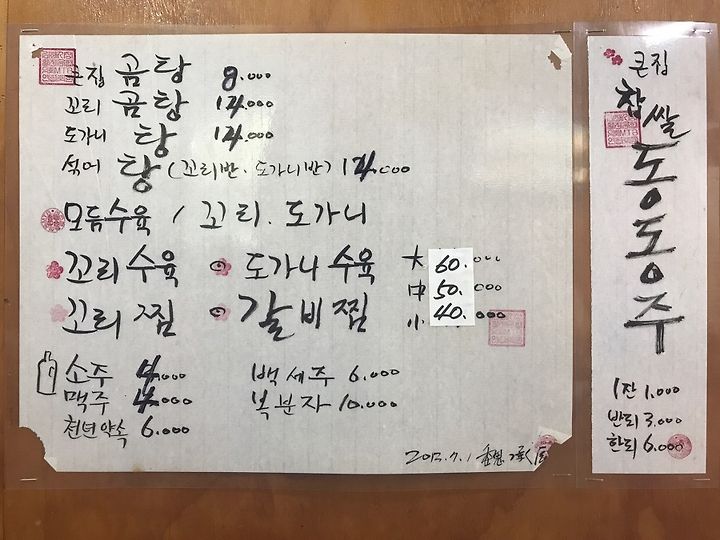 큰집 곰탕 8.000
꼬리 곰탕 14.000
도가니 탕 14.000
섞어 탕 (꼬리반. 도가니반) 14.000
모듬수육 / 꼬리. 도가니
꼬리 수육 도가니 수육 大 60.000
꼬리 찜 갈비찜 中 50.000
小 40.000
소주 4.000 백세주 6.000
맥주 4.000 복분자 10.000
천년약속 6.000
큰집
찹쌀
동동주
1잔 1.000
반되 3.000
한되 6.000